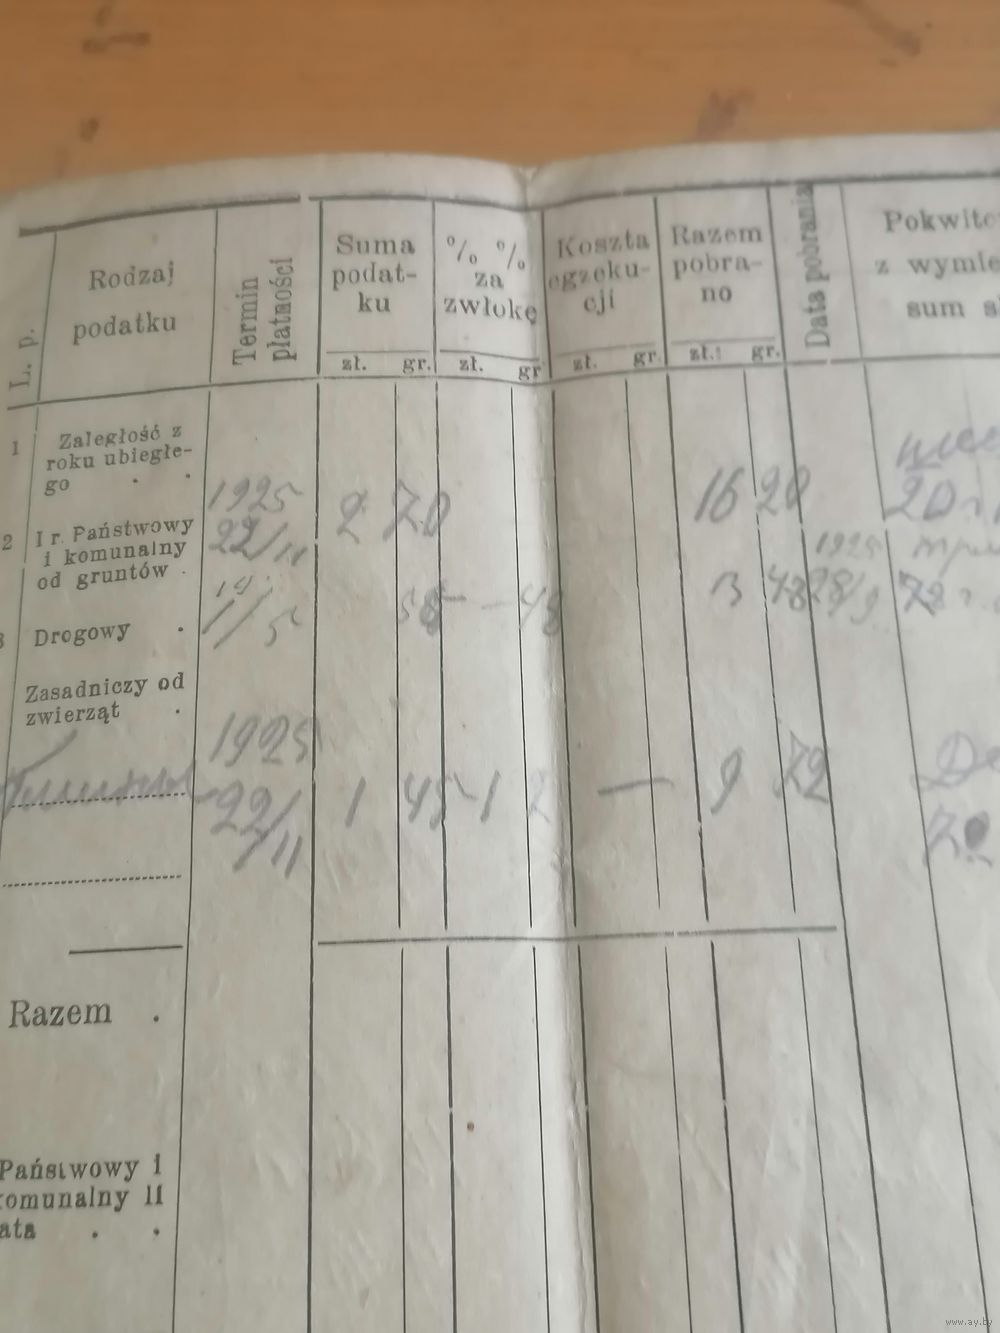 L. p.
Rodzaj
podatku
Termin
płatności
Suma
podat-
ku
zł. gr.
% %
za
zwłokę
zł. gr
Koszta
egzeku-
cji
zł. gr.
Razem
pobra-
no
zł. gr.
Data pobrania
Pokwito
z wymie
sum s
1 Zaległość z
roku ubiegłe-
go . .
1925
22/11 2 70 16 20
2 I r. Państwowy
i komunalny
od gruntów .
1925
13 48 28/9
3 Drogowy .
Zasadniczy od
zwierząt .
1925
22/11 1 45 - 1 2 — 9 72
Razem .
Państwowy i
komunalny II
ata . .
www.ay.by